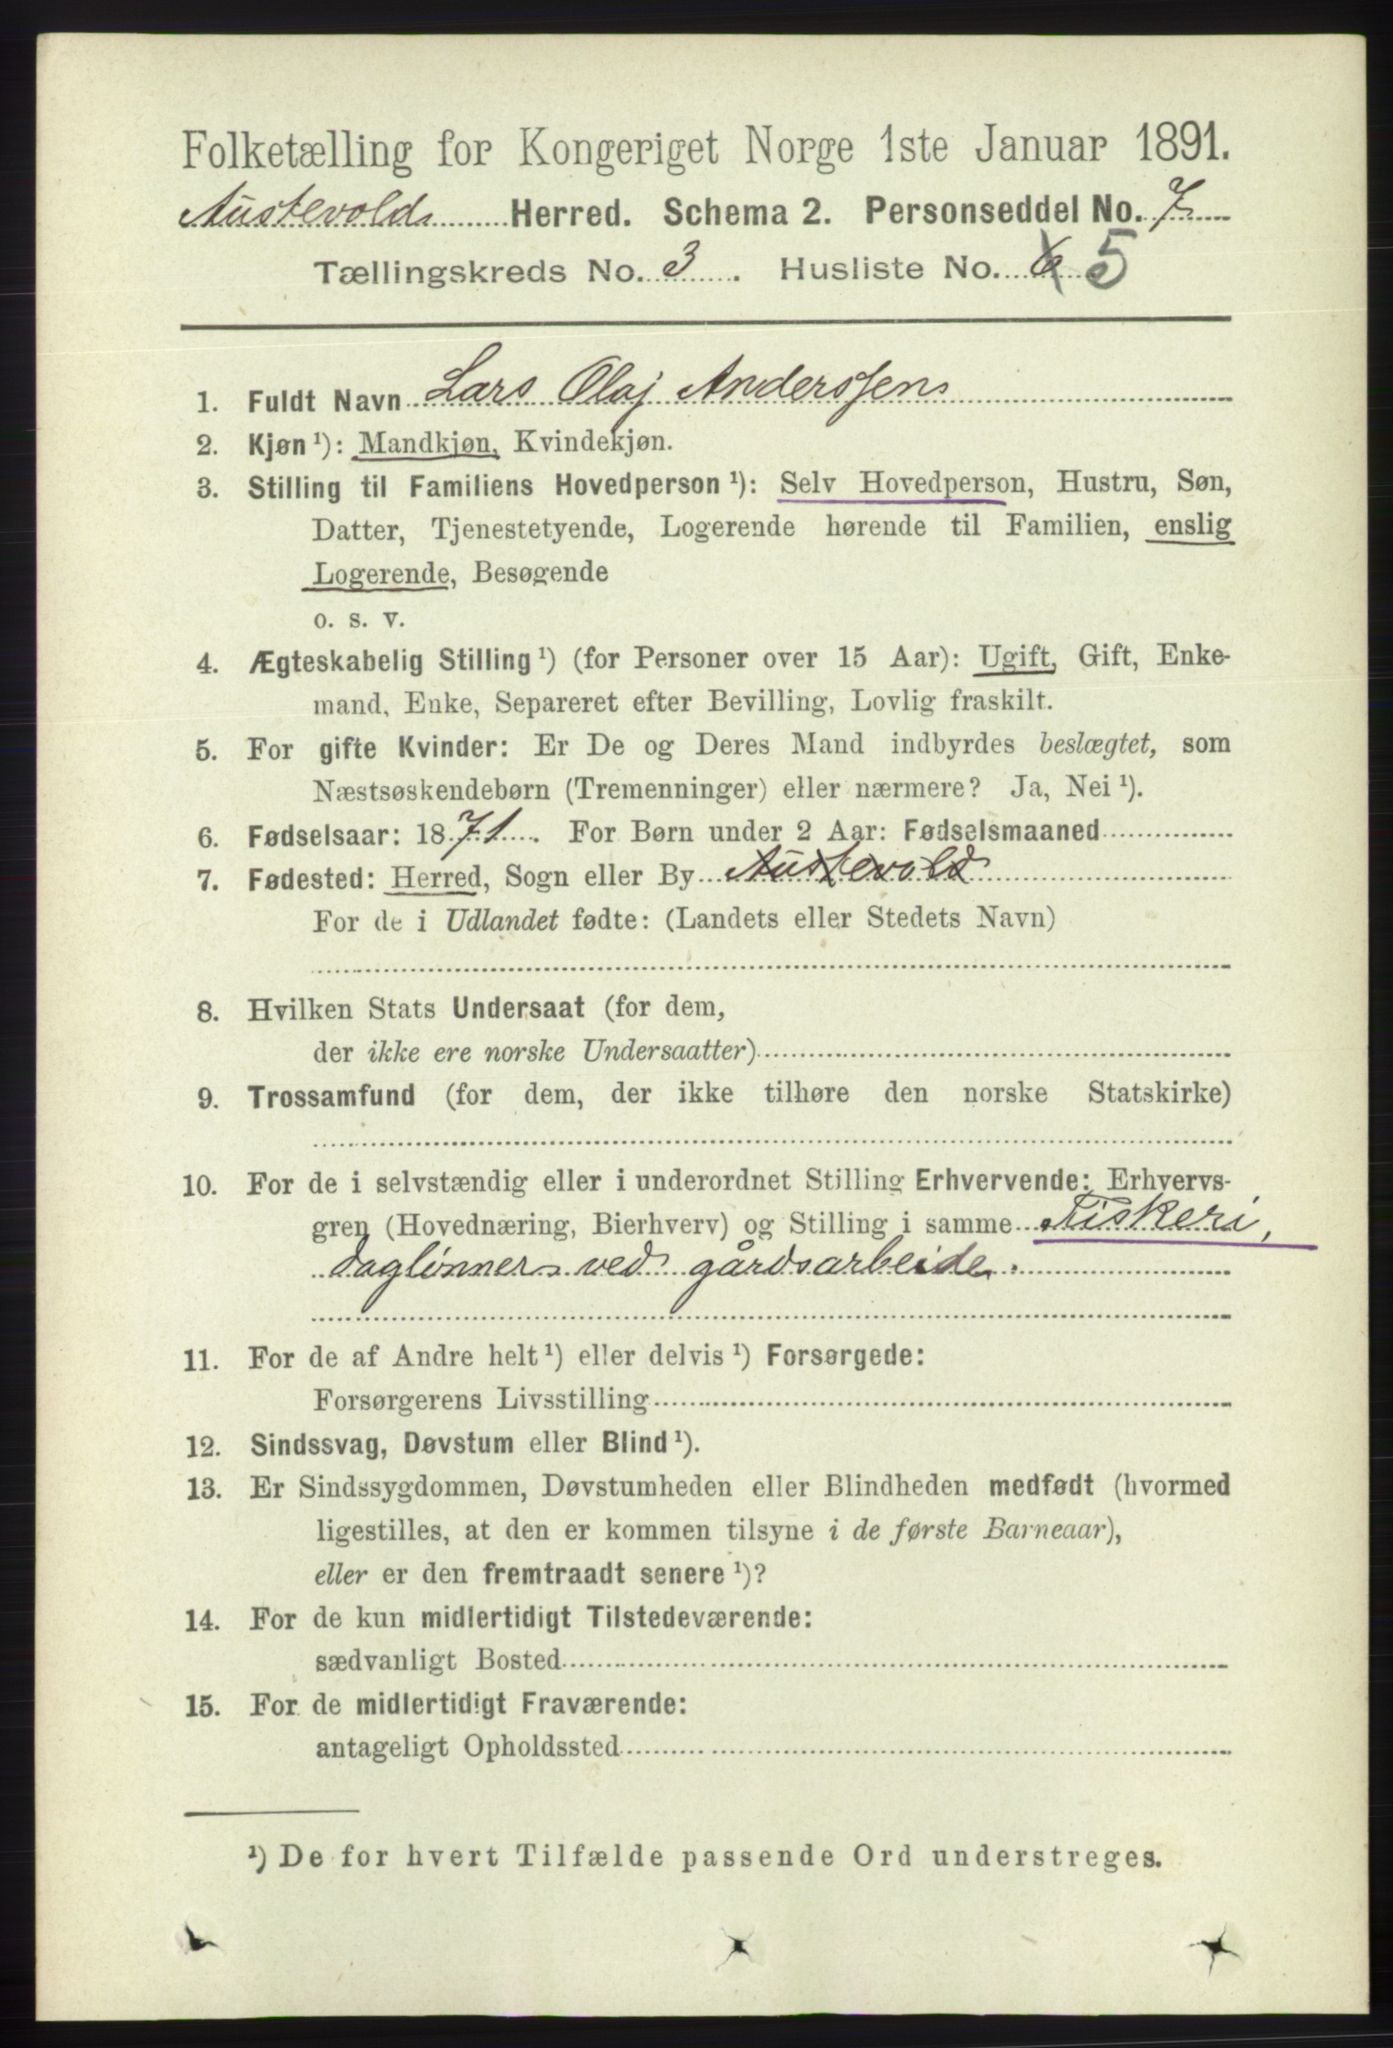 Folketælling for Kongeriget Norge 1ste Januar 1891.
Austevold Herred. Schema 2. Personseddel No. 7
Tællingskreds No. 3. Husliste No. 6 5
1. Fuldt Navn Lars Olaj Anderssen
2. Kjøn¹): Mandkjøn, Kvindekjøn.
3. Stilling til Familiens Hovedperson¹): Selv Hovedperson, Hustru, Søn,
Datter, Tjenestetyende, Logerende hørende til Familien, enslig
Logerende, Besøgende
o. s. v.
4. Ægteskabelig Stilling¹) (for Personer over 15 Aar): Ugift, Gift, Enke-
mand, Enke, Separeret efter Bevilling, Lovlig fraskilt.
5. For gifte Kvinder: Er De og Deres Mand indbyrdes beslægtet, som
Næstsøskendebørn (Tremenninger) eller nærmere? Ja, Nei¹).
6. Fødselsaar: 1871. For Børn under 2 Aar: Fødselsmaaned
7. Fødested: Herred, Sogn eller By Austevold
For de i Udlandet fødte: (Landets eller Stedets Navn)
8. Hvilken Stats Undersaat (for dem,
der ikke ere norske Undersaatter)
9. Trossamfund (for dem, der ikke tilhøre den norske Statskirke)
10. For de i selvstændig eller i underordnet Stilling Erhvervende: Erhvervs-
gren (Hovednæring, Bierhverv) og Stilling i samme Fiskeri,
daglønner ved gårdsarbeide.
11. For de af Andre helt¹) eller delvis¹) Forsørgede:
Forsørgerens Livsstilling
12. Sindssvag, Døvstum eller Blind¹).
13. Er Sindssygdommen, Døvstumheden eller Blindheden medfødt (hvormed
ligestilles, at den er kommen tilsyne i de første Barneaar),
eller er den fremtraadt senere¹)?
14. For de kun midlertidigt Tilstedeværende:
sædvanligt Bosted
15. For de midlertidigt Fraværende:
antageligt Opholdssted
¹) De for hvert Tilfælde passende Ord understreges.